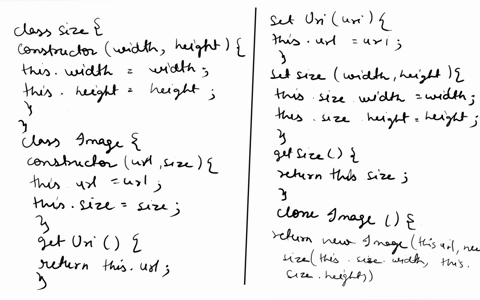 class Size {
constructor (width, height) {
this. width = width;
this. height = height;
}
}
class Image {
constructor (url, size) {
this url = url;
this. size = size;
}
get Uri () {
return this. url;
}
set Uri (uri) {
this. url = url;
}
Set size (width, height) {
this. size width = width;
this. size height = height;
}
get Size () {
return this size;
}
clone Image () {
return new Image (this url, new
size (this. size. width, this.
size. height))